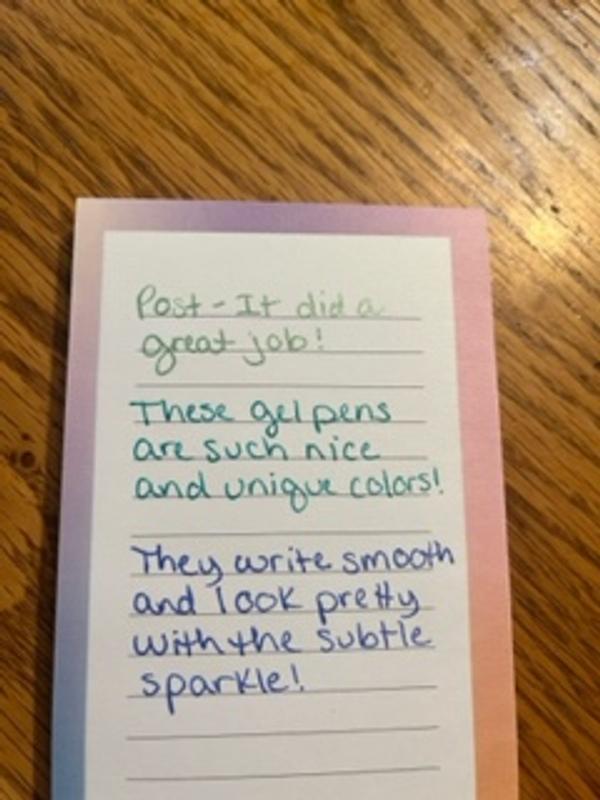 Post-It did a
great job!
These gel pens
are such nice
and unique colors!
They write smooth
and look pretty
with the subtle
sparkle!